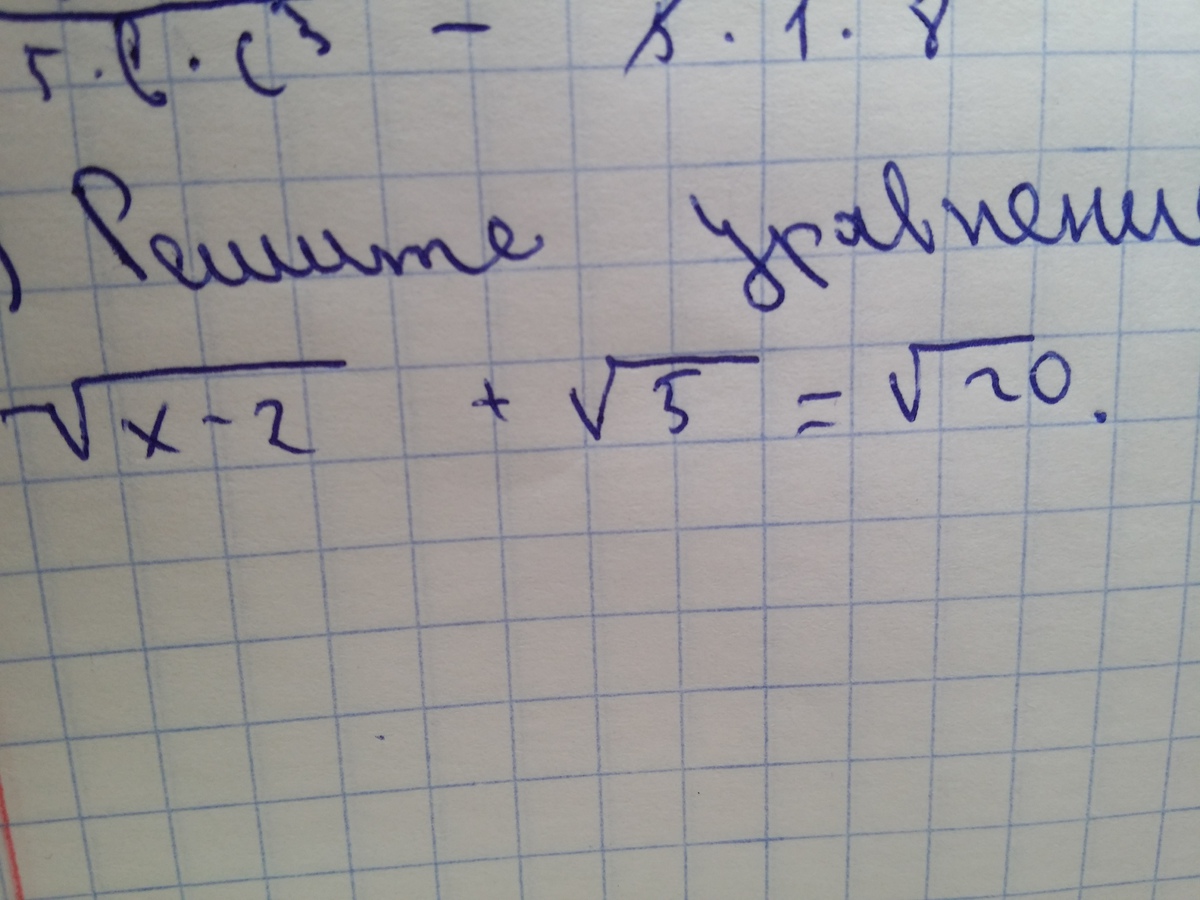 5·b·c³ - 5·1·8
) Решите уравнени
√x-2 + √5 = √20.